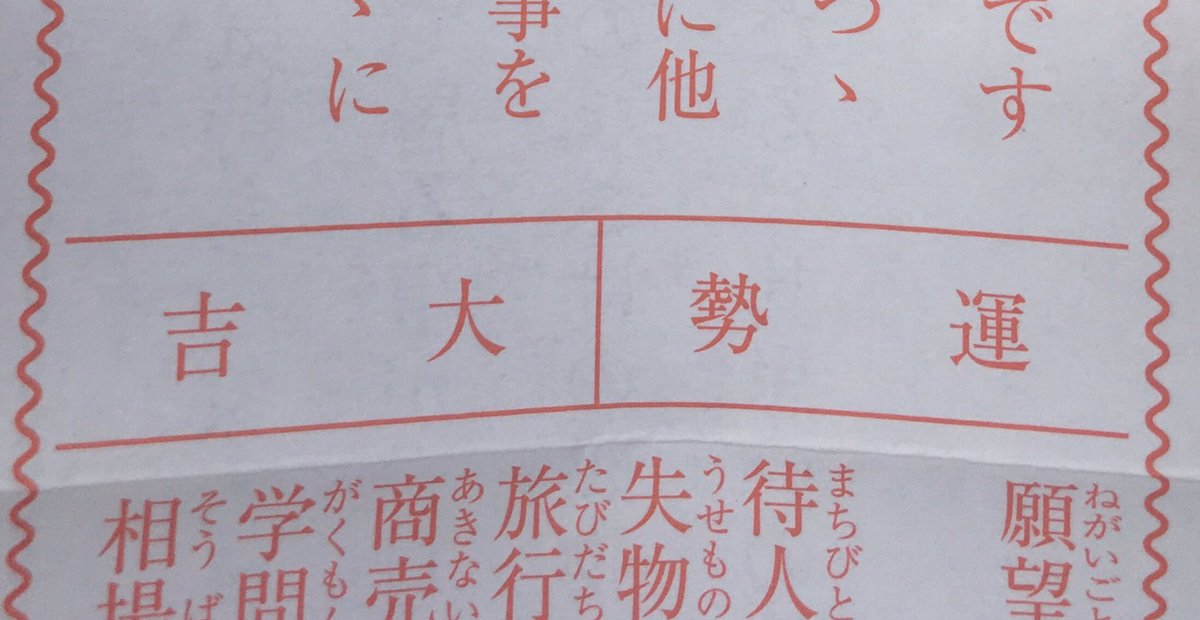 です
つ、
に他
事を
、に
運勢
大吉
願望 ねがいごと
待人 まちびと
失物 うせもの
旅行 たびだち
商売 あきない
学問 がくもん
相場 そうば